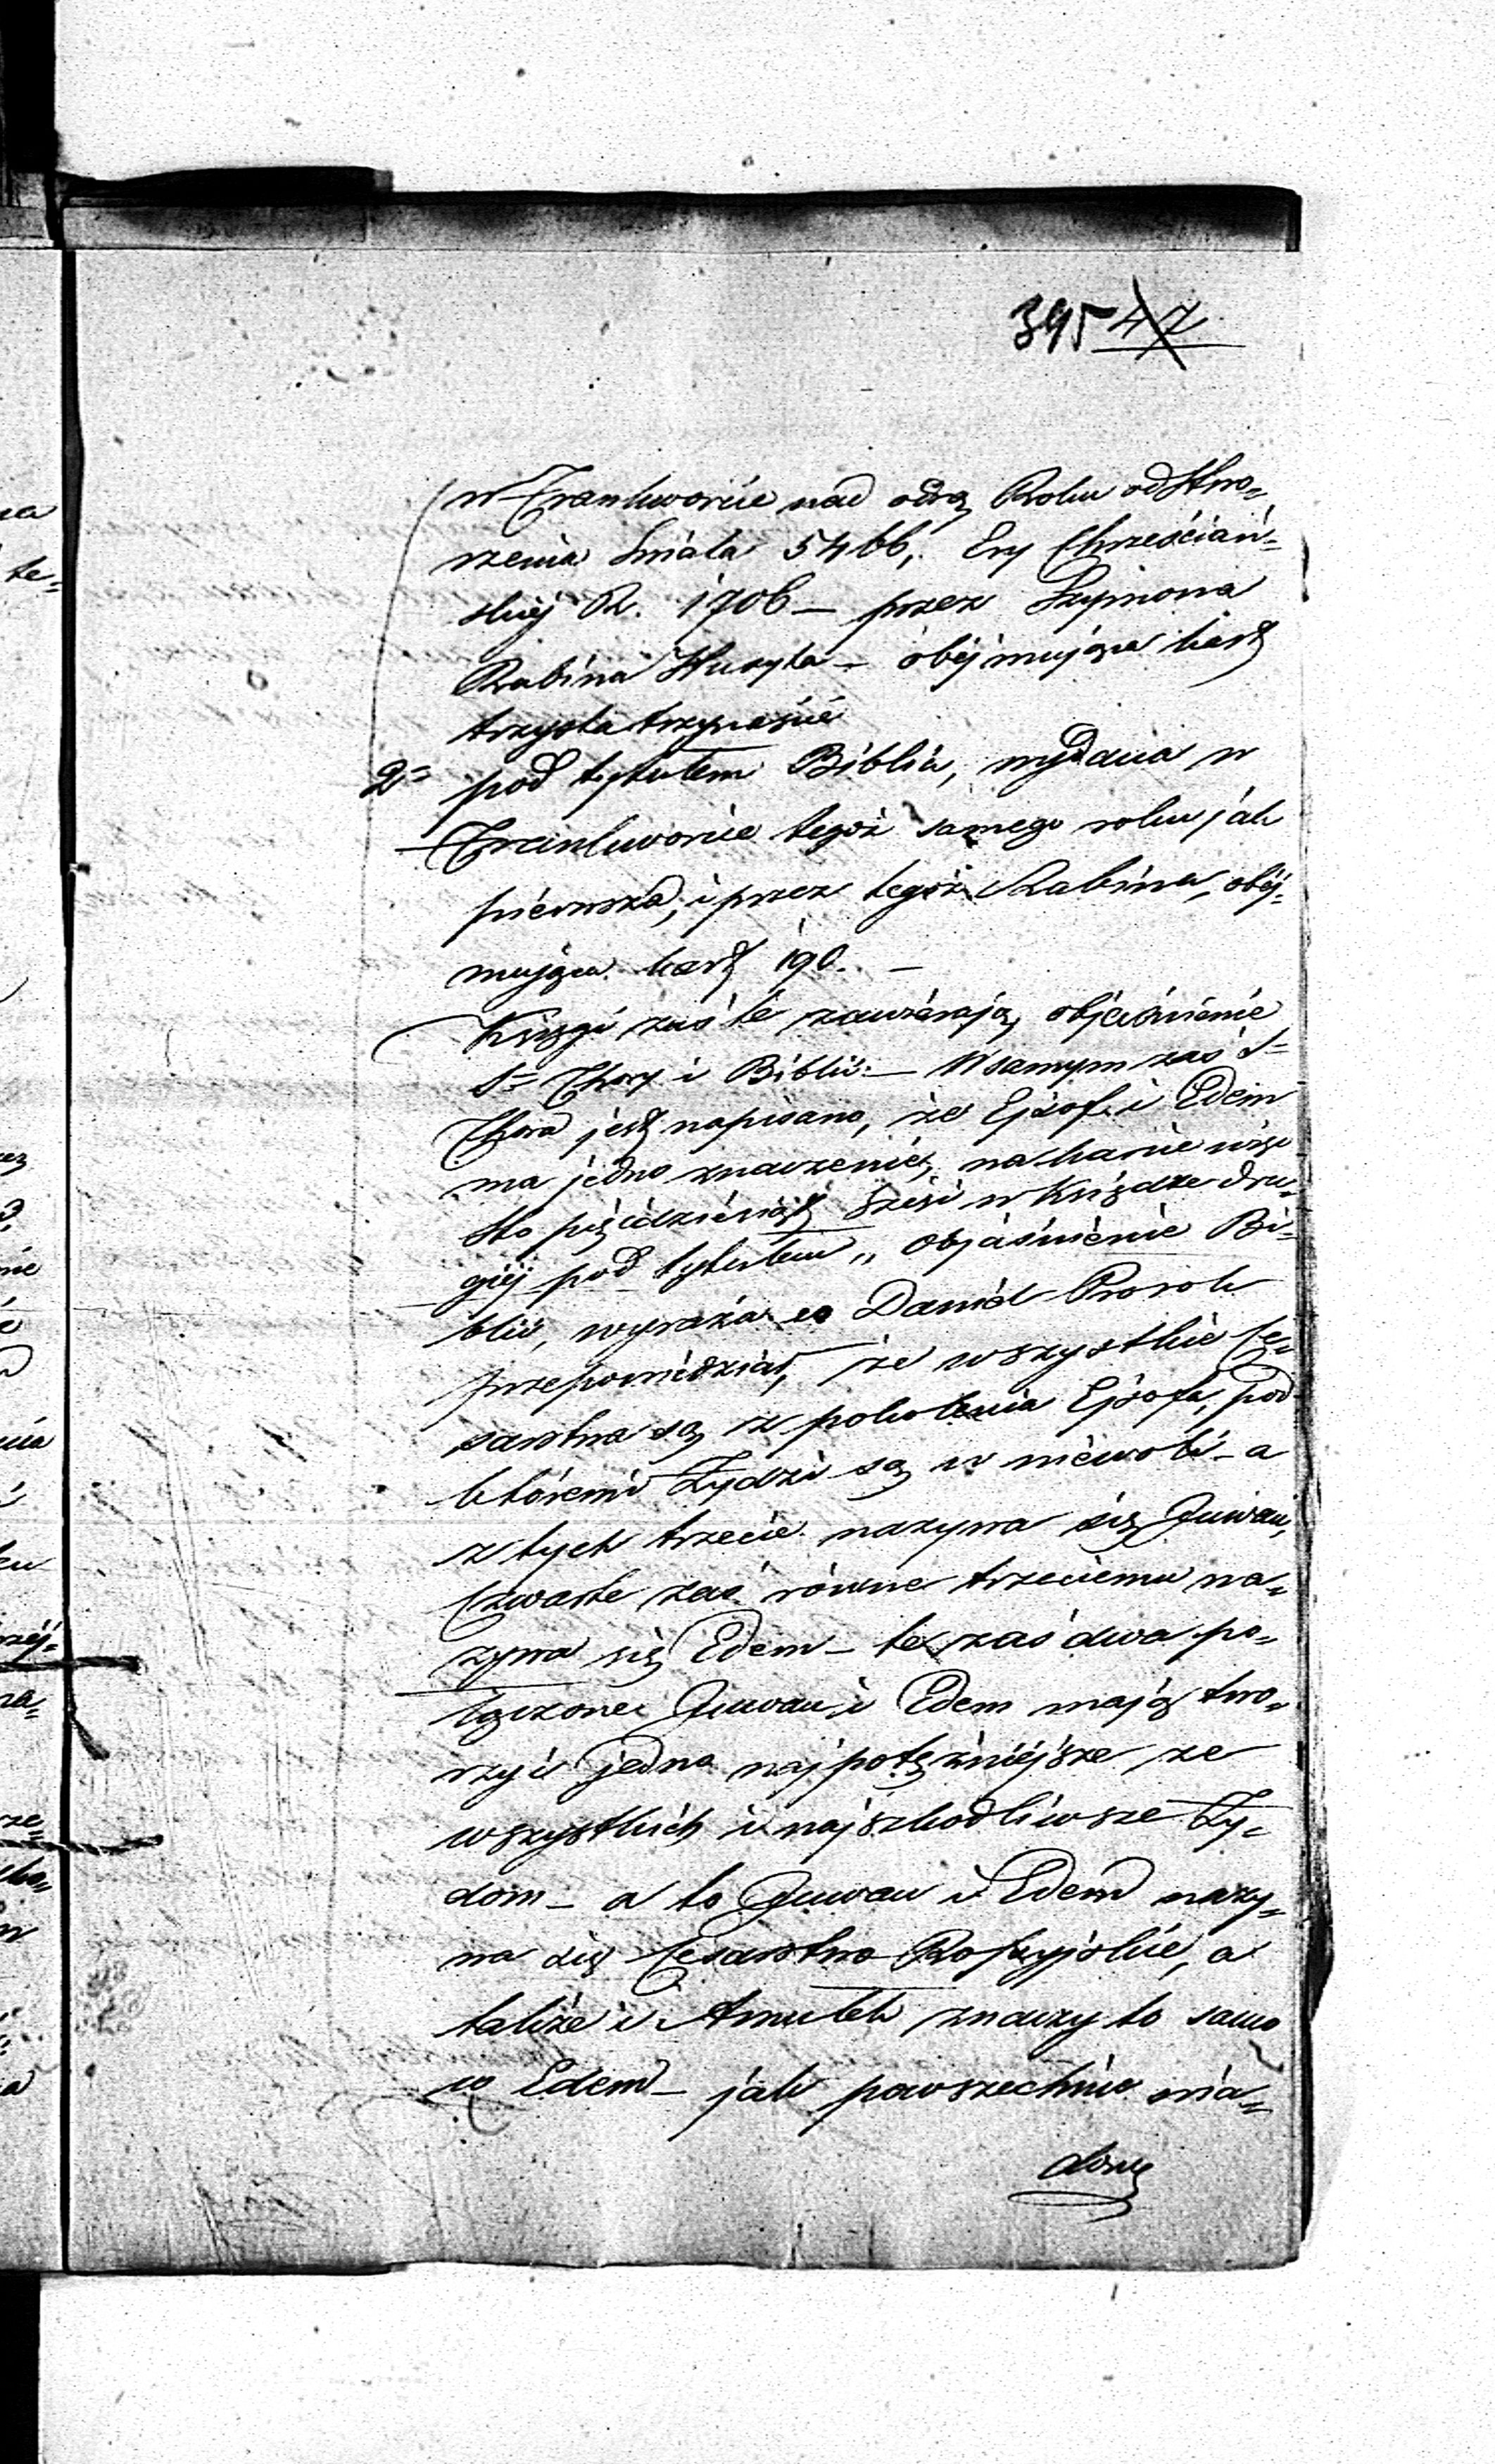 395 47
w Frankworcie nad odrą Roku od Stwo=
rzenia Swiata 5466, Ery Chrześciań=
skiej R. 1706 — przez Szymona
Rabina — obejmująca kart
trzysta trzynaście
2= pod tytułem Biblia, wydana w
Frankworcie tegoż samego roku jak
pierwsza, i przez tegoż Rabina, obej=
mująca kart 190. —
Księgi zaś te zawierają objaśnienie
S= Thory i Biblii — W samym zaś S=
Thora jest napisano, że Ejzof i Edem
ma jedno znaczenie, na karcie więc
sto pięćdziesiąt sześć w Księdze dru=
giej pod tytułem „ objaśnienie Bi=
blii, wyraża co Daniel Prorok
przepowiedział, że wszystkie Ce=
sarstwa są z pokolenia Ejzofa, pod
któremi Żydzi są w niewoli — a
z tych trzecie nazywa się Juwan,
czwarte zaś równe trzeciemu na=
zywa się Edem — te zaś dwa po=
łączone Juwan i Edem mają two=
rzyć jedno najpotężniejsze ze
wszystkich i najszkodliwsze Ży=
dom — a to Juwan i Edem nazy=
wa się Cesarstwo Rossyjskie, a
także i Amulek znaczy to samo
co Edem — jak powszechnie wia=
domo